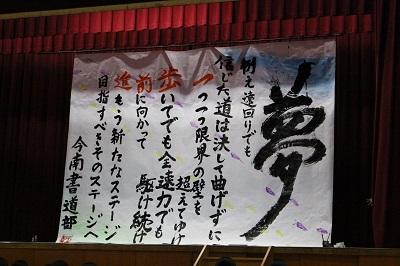 夢
例え遠回りでも
信じた道は決して曲げずに
一つ一つ限界の壁を
超えてゆけ
歩いてでも全速力でも
駆け続け
前に向かって
進もう新たなステージ
目指すべきそのステージへ
今南書道部